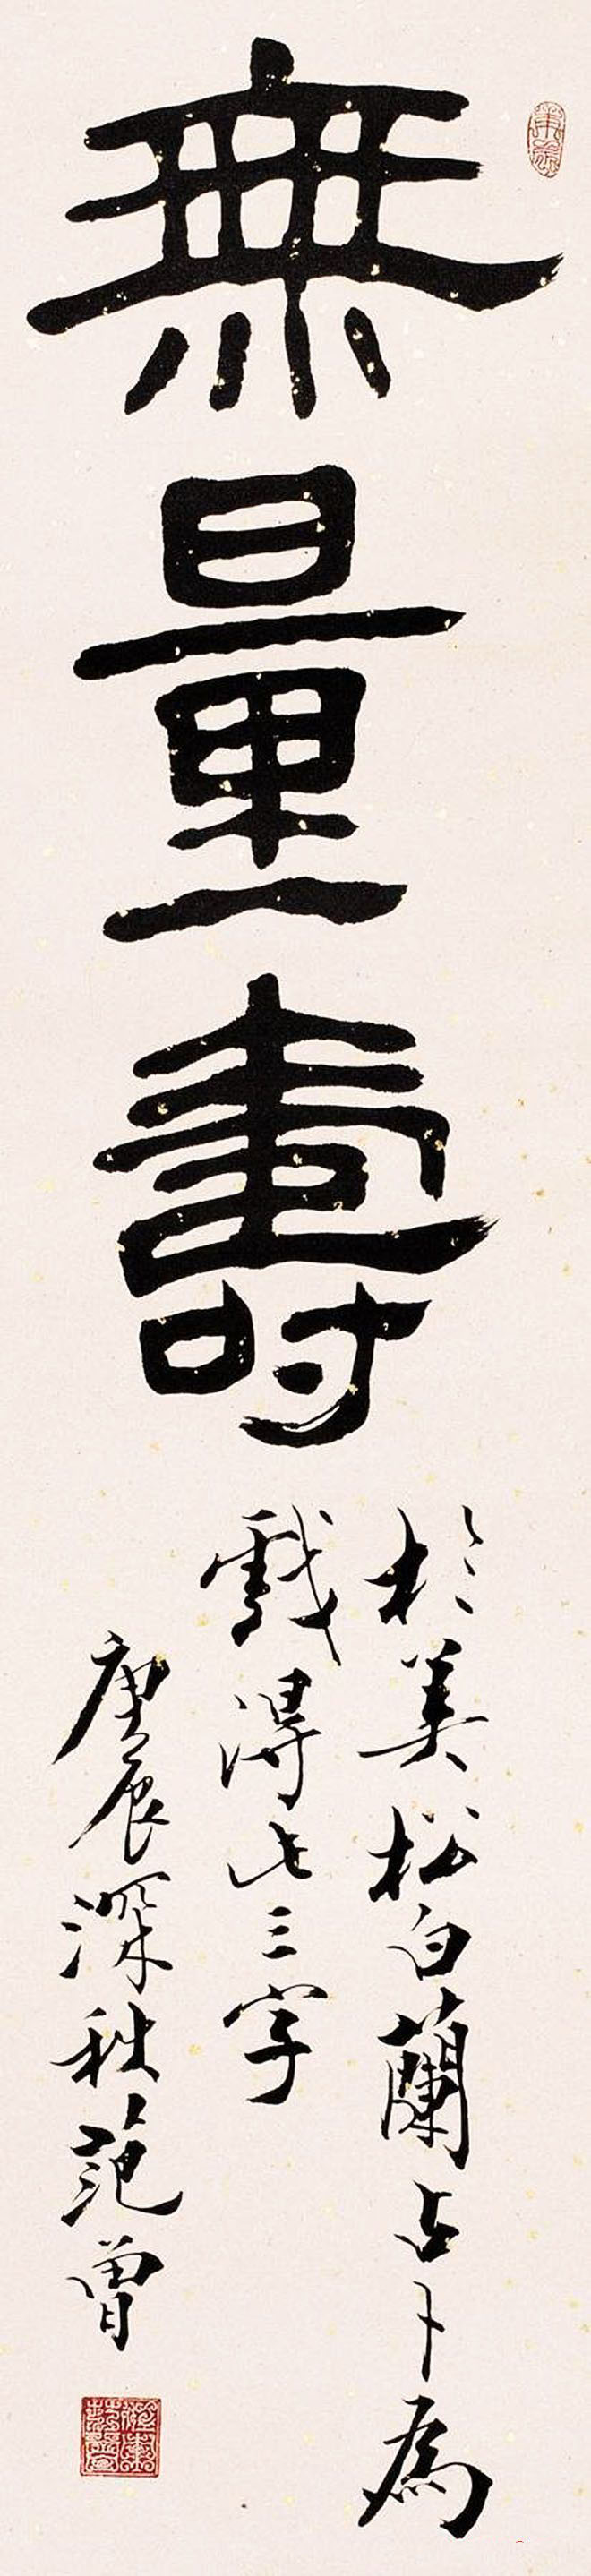 無量壽
於美松白蘭占卜為
戲得此三字
庚辰深秋范曾